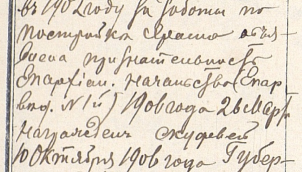 въ 1902 году за работы по
постройкѣ храма объя-
влена признательность
Епархіал. начальства (Епар
вѣд. № 1й) 1906 года 26 Март
награжденъ скуфьей
10 Октября 1906 года Губер-